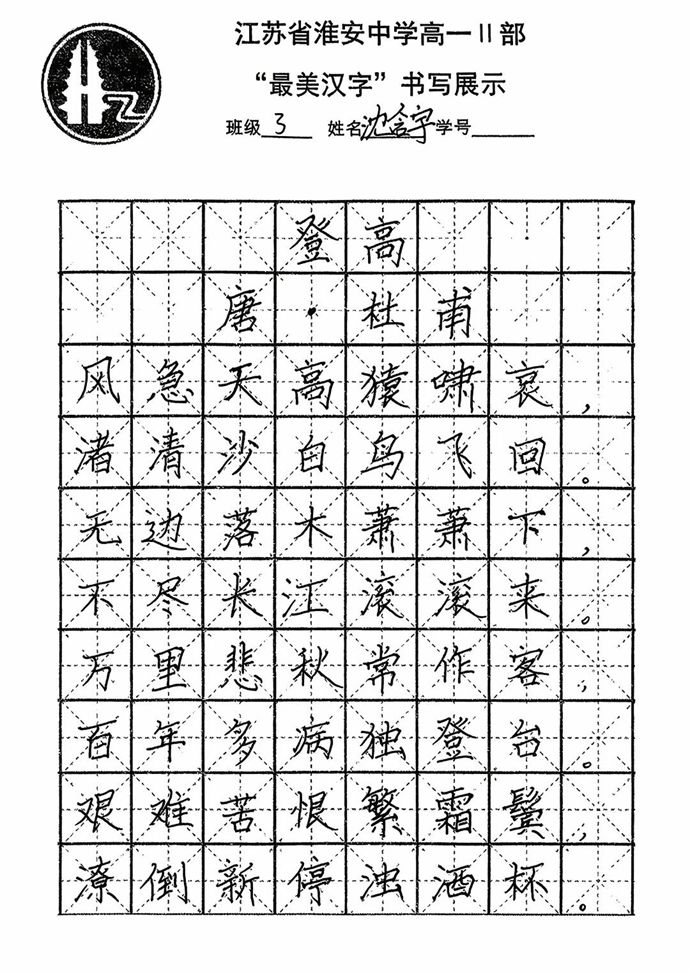 江苏省淮安中学高一II部
“最美汉字”书写展示
班级 3 姓名 沈含宇 学号
登高
唐·杜甫
风急天高猿啸哀，
渚清沙白鸟飞回。
无边落木萧萧下，
不尽长江滚滚来。
万里悲秋常作客，
百年多病独登台。
艰难苦恨繁霜鬓，
潦倒新停浊酒杯。